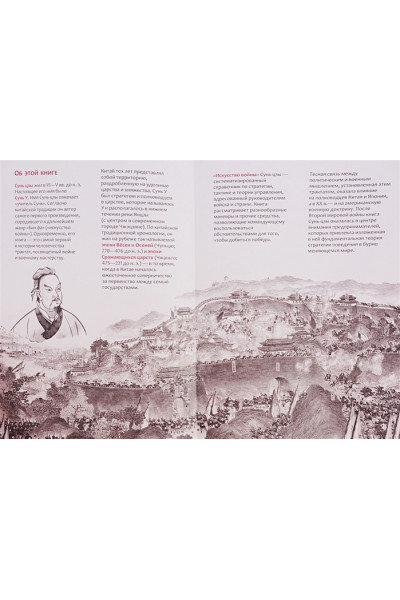 ОБ ЭТОЙ КНИГЕ
Сунь-цзы жил в VI–V вв. до н. э.
Настоящее его имя было
Сунь У. Имя Сунь-цзы означает
«учитель Сунь». Согласно
китайской традиции он автор
самого первого произведения,
породившего в дальнейшем
жанр «бин фа» («искусство
войны»). Одновременно, его
книга — это самый первый
в истории человечества
трактат, посвященный войне
и военному мастерству.
Китай тех лет представлял
собой территорию,
раздробленную на удельные
царства и княжества. Сунь У
был стратегом и полководцем
в царстве, которое называлось
У и располагалось в нижнем
течении реки Янцзы
(с центром в современном
городе Чжэцзяне). По китайской
традиционной хронологии, он
жил на рубеже так называемой
эпохи Вёсен и Осеней (Чуньцю;
770—476 до н. э.) и эпохи
Сражающихся царств (Чжаньго;
475—221 до н. э.) — в то время,
когда в Китае началось
ожесточенное соперничество
за первенство между семью
государствами.
«Искусство войны» Сунь-цзы —
систематизированный
справочник по стратегии,
тактике и теории управления,
адресованный руководителям
войска и страны. Книга
рассматривает разнообразные
маневры и прочие средства,
позволяющие командующему
воспользоваться
обстоятельствами для того,
чтобы добиться победы.
Тесная связь между
политическим и военным
мышлением, установленная этим
трактатом, оказала влияние
на полководцев Китая и Японии,
а в XX в. — и на американскую
военную доктрину. После
Второй мировой войны книга
Сунь-цзы оказалась в центре
внимания предпринимателей,
которых привлекла изложенная
в ней фундаментальная теория
стратегии поведения в бурно
меняющемся мире.